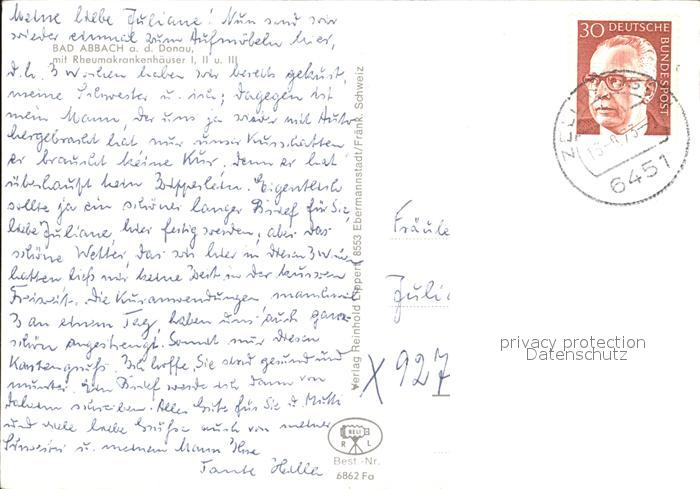 Meine liebe Juliane! Nun sind wir
wieder einmal zum Aufmöbeln hier,
BAD ABBACH a. d. Donau,
mit Rheumakrankenhäuser I, II u. III
d.h. 3 Wochen haben wir bereits gekurt,
meine Schwester u. ich; dagegen ist
mein Mann, der uns ja wieder mit Auto
hergebracht hat, nur unser Kurschatten
er braucht keine Kur, denn er hat
überhaupt kein Zipperlein. Eigentlich
sollte ja ein schöner langer Brief für Sie,
liebe Juliane, hier fertig werden, aber das
schöne Wetter, das wir hier in diesen 3 Wochen
hatten ließ mir keine Zeit in der kurzen
Freizeit. Die Kuranwendungen, manchmal
3 an einem Tag, haben uns auch ganz
schön angestrengt. Somit nur diesen
Kartengruß. Ich hoffe, Sie sind gesund und
munter. Ein Brief werde ich dann von
daheim schreiben. Alles Gute für Sie u. Mutti
und viele liebe Grüße auch von meiner
Schwester u. meinem Mann Ihre
Tante Hella
Verlag Reinhold Lippert, 8553 Ebermannstadt/Fränk. Schweiz
30 DEUTSCHE
BUNDESPOST
ZELL
6451
Fräule
Juli
X 927
privacy protection
Datenschutz
RELI
R L
Best.-Nr.
6862 Fa